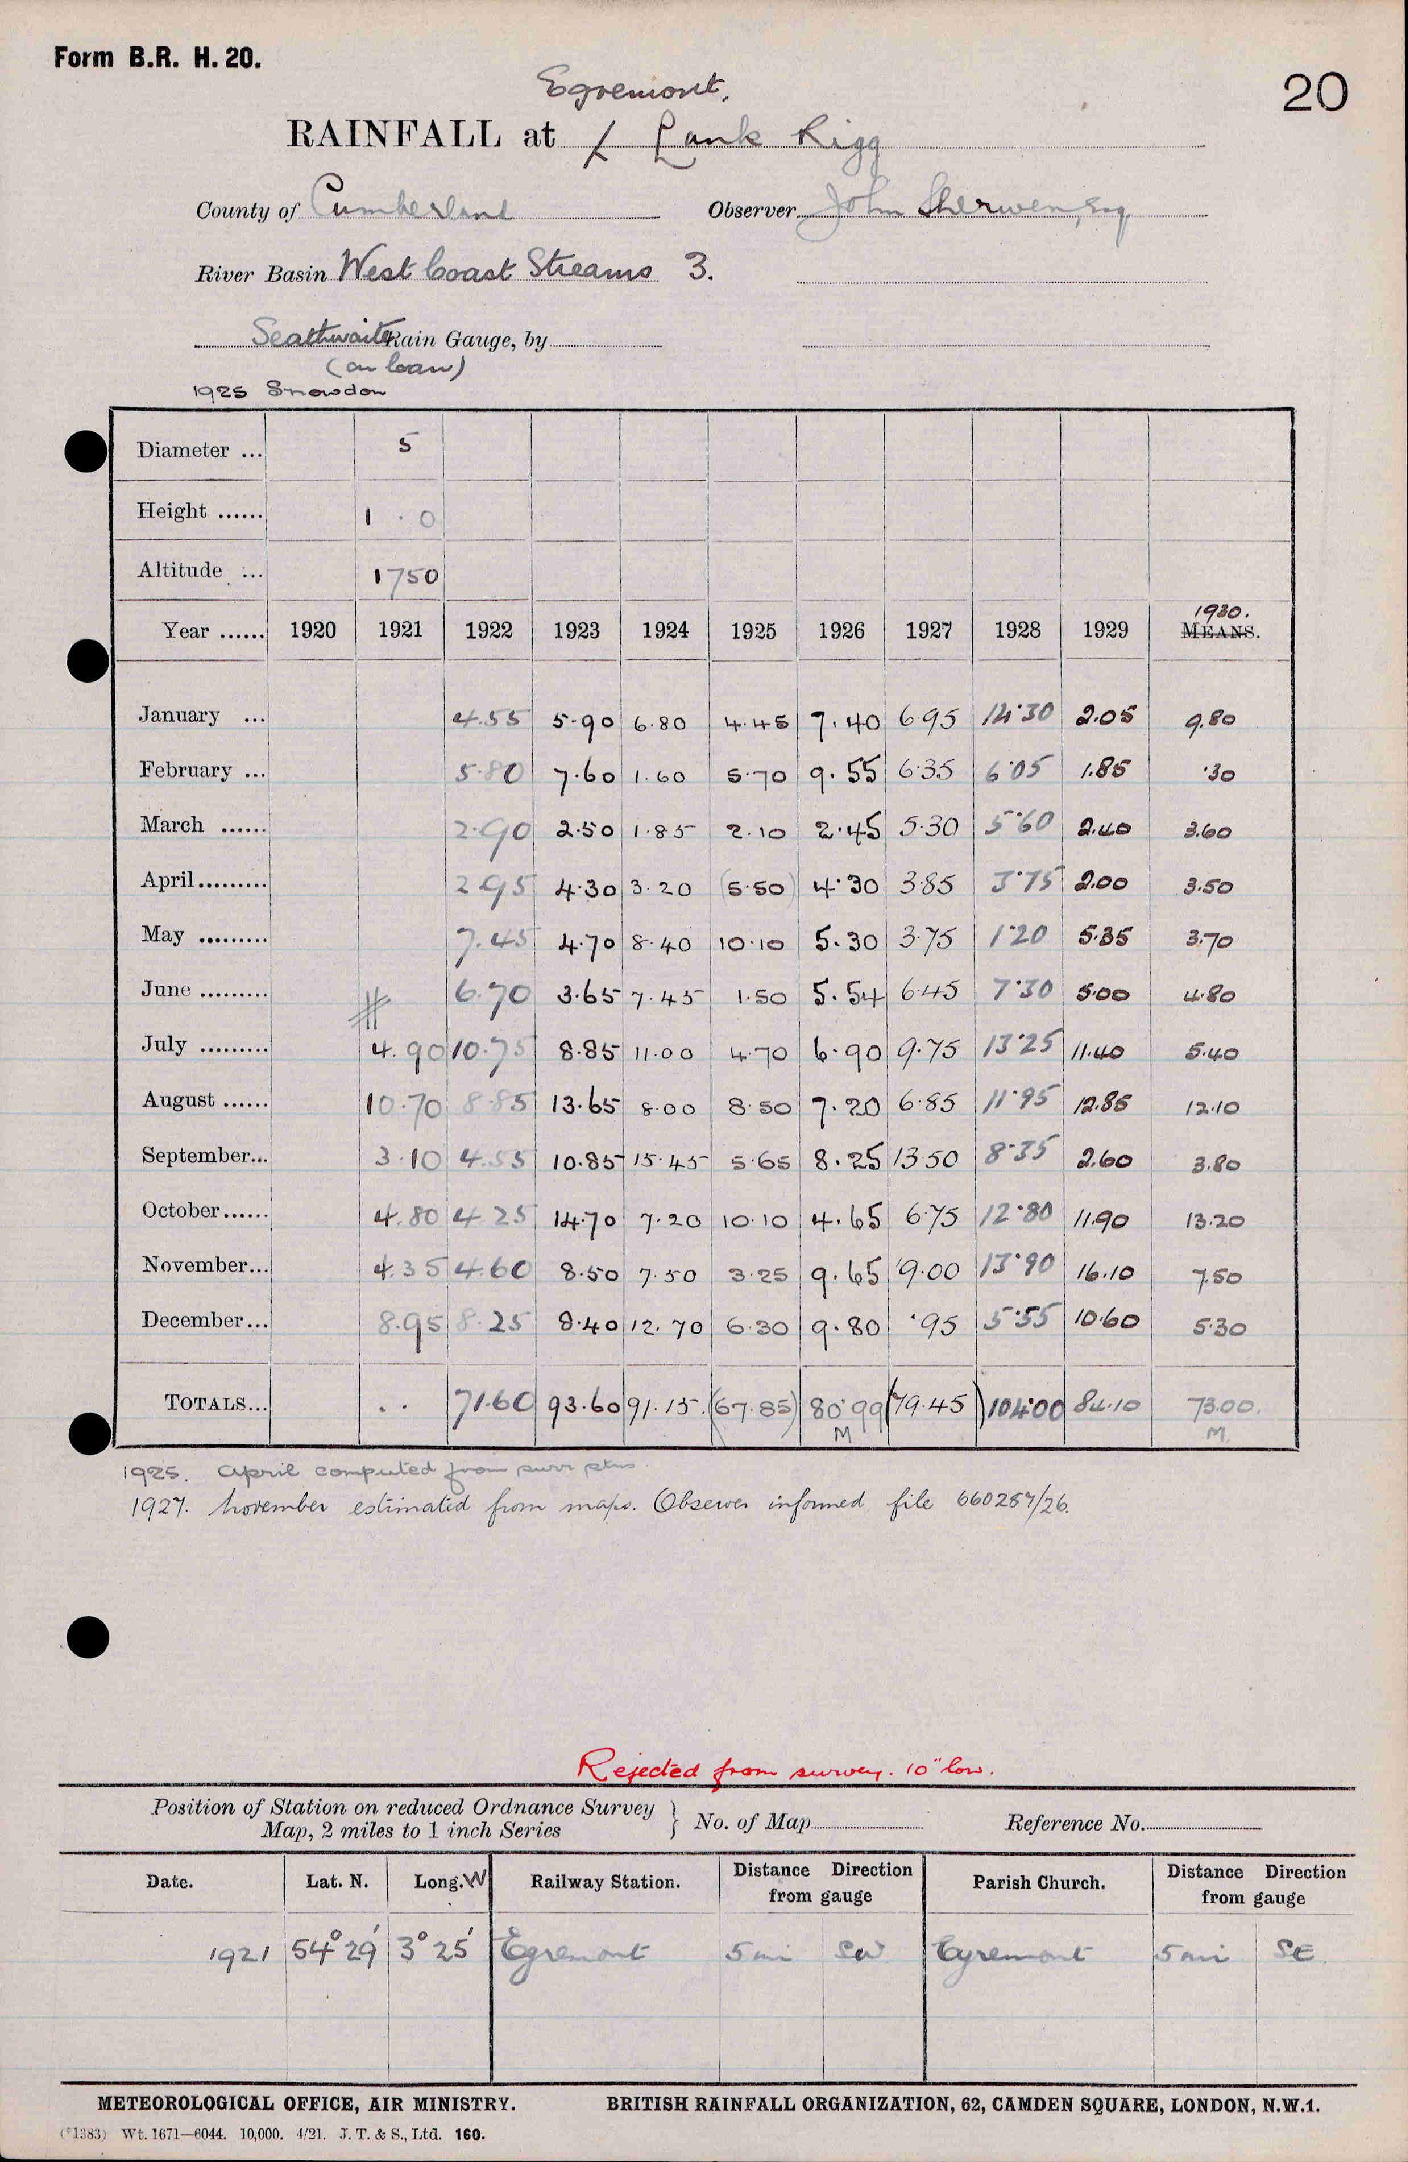 Form B.R. H. 20.
20
Egremont.
RAINFALL at Lank Rigg
County of Cumberland Observer John Sherwen, Esq
River Basin West Coast Streams 3.
Seathwaite Rain Gauge, by
(on loan)
1925 Snowdon
Diameter ... 5
Height ...... 1 . 0
Altitude ... 1750
1930.
Year ...... 1920 1921 1922 1923 1924 1925 1926 1927 1928 1929 MEANS.
January ... 4.55 5.90 6.80 4.45 7.40 6.95 14.30 2.05 9.80
February ... 5.80 7.60 1.60 5.70 9.55 6.35 6.05 1.85 .30
March ...... 2.90 2.50 1.85 2.10 2.45 5.30 5.60 2.40 3.60
April......... 2.95 4.30 3.20 (5.50) 4.30 3.85 3.75 2.00 3.50
May ......... 7.45 4.70 8.40 10.10 5.30 3.75 1.20 5.35 3.70
June ......... 6.70 3.65 7.45 1.50 5.54 6.45 7.30 5.00 4.80
July ......... 4.90 10.75 8.85 11.00 4.70 6.90 9.75 13.25 11.40 5.40
August ...... 10.70 8.85 13.65 8.00 8.50 7.20 6.85 11.95 12.85 12.10
September... 3.10 4.55 10.85 15.45 5.65 8.25 13.50 8.35 2.60 3.80
October...... 4.80 4.25 14.70 7.20 10.10 4.65 6.75 12.80 11.90 13.20
November... 4.35 4.60 8.50 7.50 3.25 9.65 9.00 13.90 16.10 7.50
December... 8.95 8.25 8.40 12.70 6.30 9.80 .95 5.55 10.60 5.30
TOTALS... .. 71.60 93.60 91.15. (67.85) 80.99 (79.45) 104.00 84.10 73.00.
M M.
1925. April computed from surr stns.
1927. November estimated from maps. Observer informed file 660287/26.
Rejected from survey. 10" low.
Position of Station on reduced Ordnance Survey
Map, 2 miles to 1 inch Series } No. of Map Reference No.
Date. Lat. N. Long. W Railway Station. Distance Direction from gauge Parish Church. Distance Direction from gauge
1921 54° 29' 3° 25' Egremont 5 mi SW Egremont 5 mi SE
METEOROLOGICAL OFFICE, AIR MINISTRY. BRITISH RAINFALL ORGANIZATION, 62, CAMDEN SQUARE, LONDON, N.W.1.
(*1383) Wt. 1671—6044. 10,000. 4/21. J. T. & S., Ltd. 160.